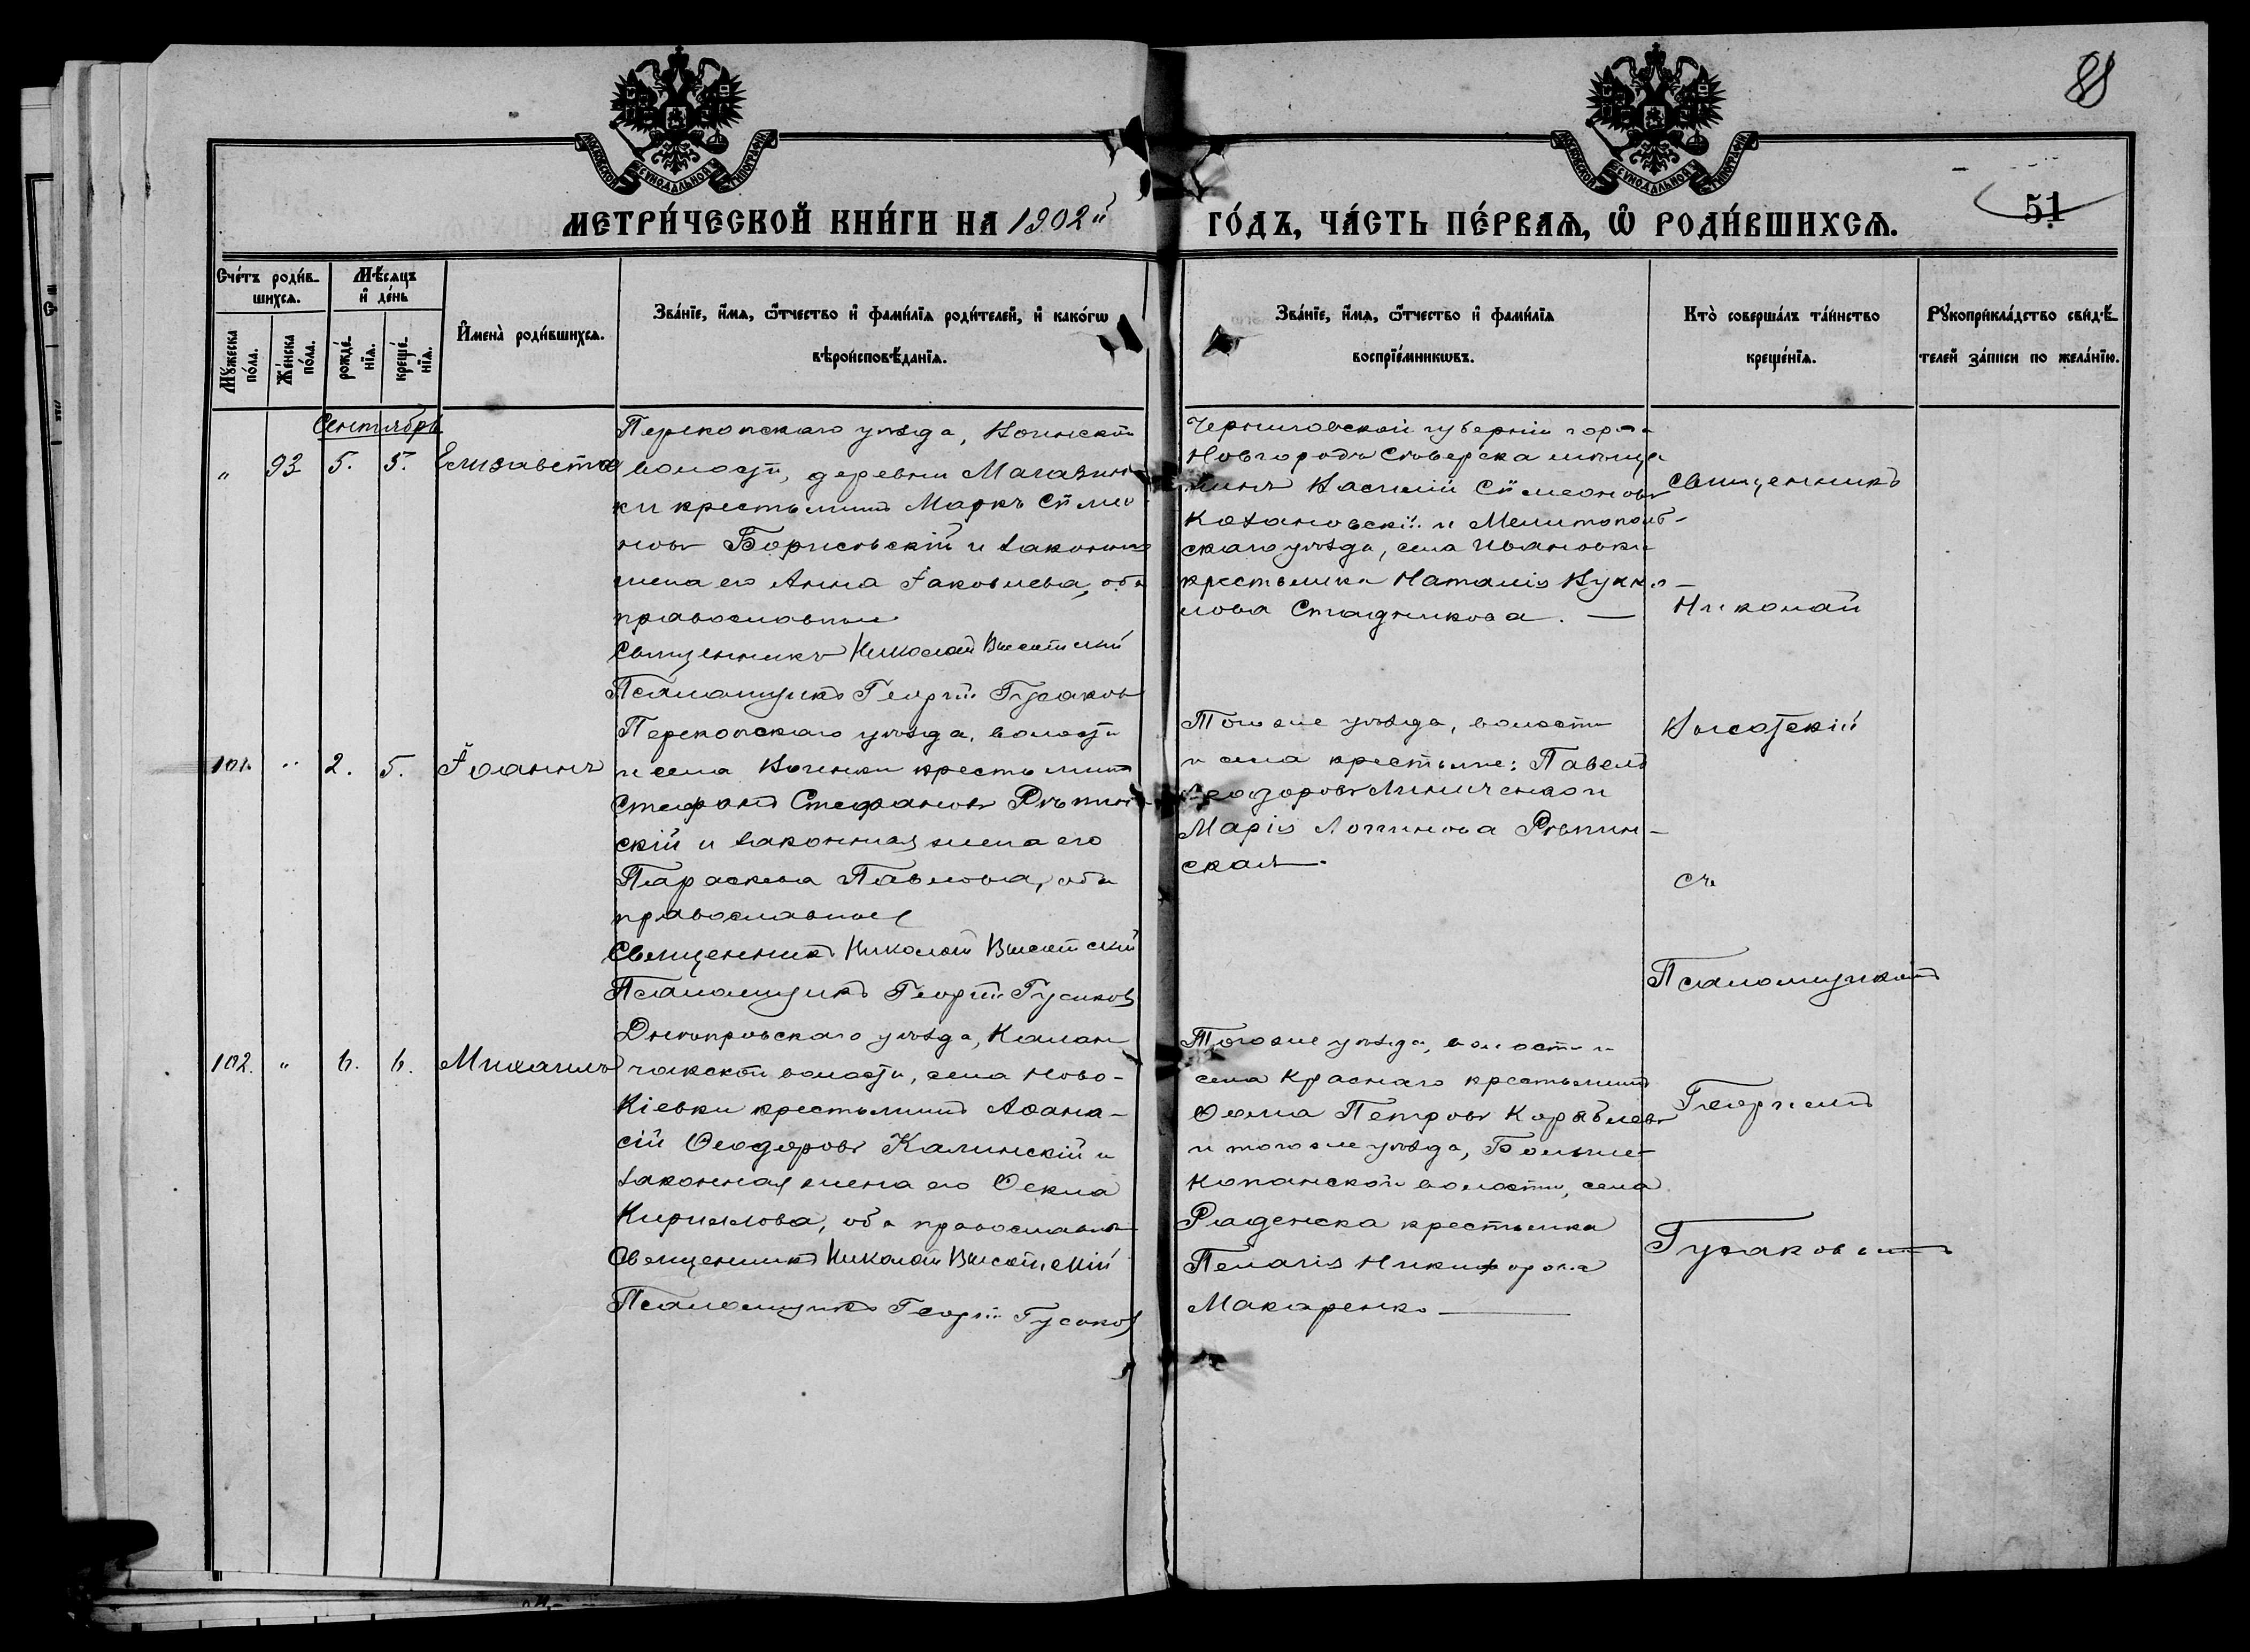 88
МОСКОВСКОЙ СѴНОДАЛЬНОЙ ТИПОГРАФІИ
МОСКОВСКОЙ СѴНОДАЛЬНОЙ ТИПОГРАФІИ
МЕТРИ́ЧЕСКОЙ КНИ́ГИ НА 1902й ГО́ДЪ, ЧА́СТЬ ПЕ́РВАЯ, Ѡ РОДИ́ВШИХСЯ.
51
Сче́тъ роди́в-
шихся.
Мѣ́сяцъ
и де́нь
Му́жеска
по́ла.
Же́нска
по́ла.
рожде́-
нія.
креще́-
нія.
Имена̀ роди́вшихся.
Зва́ніе, и́мя, ѻ́тчество и фами́лія роди́телей, и како́гѡ
вѣроисповѣ́данія.
Зва́ніе, и́мя, ѻ́тчество и фами́лія
воспріе́мникѡвъ.
Кто̀ соверша́лъ та́инство
креще́нія.
Рꙋкоприкла́дство свидѣ́-
телей за́писи по жела́нію.
Сентябрь
" 93 5. 5. Елизавета
Перекопскаго уѣзда, Воинской
волости, деревни Магазин-
ки крестьянинъ Маркъ Сѵмео-
новъ Борисовскій и законная
жена его Анна Іаковлева, оба
православные
Священникъ Николай Высотскій
Псаломщикъ Георгій Гусаковъ
Черниговской губерніи города
Новгородъ Сѣверска мѣща-
нинъ Василій Сѵмеоновъ
Кохановскій и Мелитополь-
скаго уѣзда, села Ивановки
крестьянка Наталія
Стадникова. —
101. " 2. 5. Іоаннъ
Перекопскаго уѣзда, волости
и села Воинки крестьянинъ
Стефанъ Стефановъ Рѣпин-
скій и законная жена его
Параскева Павлова, оба
православные
Священникъ Николай Высотскій
Псаломщикъ Георгій Гусаковъ
Того же уѣзда, волости
и села крестьяне: Павелъ
Ѳеодоровъ Линиченко и
Марія Логинова Рѣпин-
ская —.
102. " 6. 6. Михаилъ
Днѣпровскаго уѣзда, Калан-
чакской волости, села Ново-
Кіевки крестьянинъ Аѳана-
сій Ѳеодоровъ Калинскій и
законная жена его Ѳекла
Кириллова, оба православные
Священникъ Николай Высотскій
Псаломщикъ Георгій Гусаковъ
Того же уѣзда, волости и
села Краснаго крестьянинъ
Ѳома Петровъ Кораблевъ
и того же уѣзда, Больше-
Копанской волости, села
Раденска крестьянка
Пелагія Никифорова
Макаренко —
Священникъ
Николай
Высотскій
съ
Псаломщикомъ
Георгіемъ
Гусаковымъ